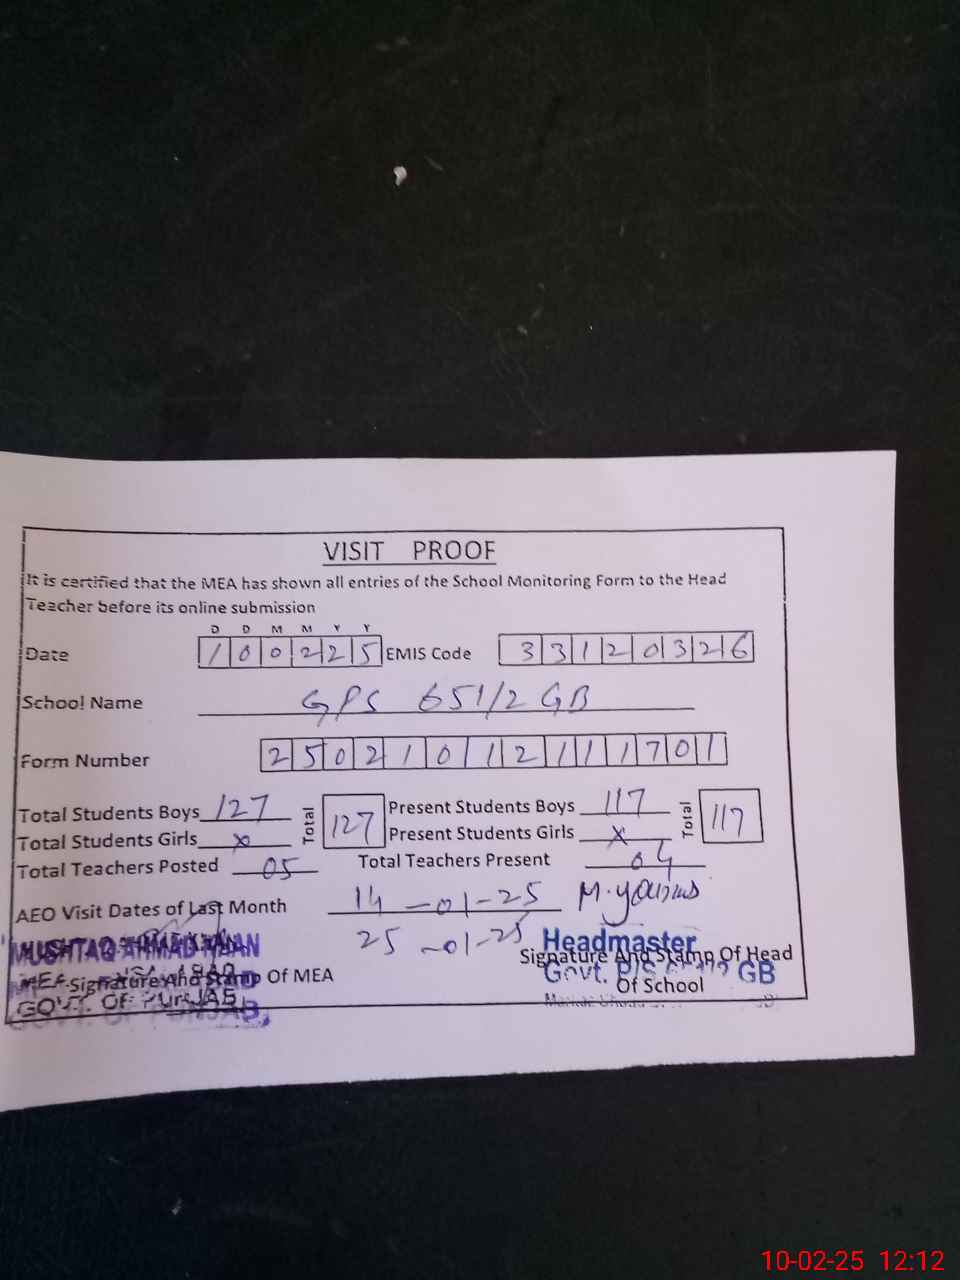 VISIT PROOF
It is certified that the MEA has shown all entries of the School Monitoring Form to the Head
Teacher before its online submission
D D M M Y Y
Date 100225 EMIS Code 33120326
School Name GPS 651/2 GB
Form Number 250210121111701
Total Students Boys 127 Total 127 Present Students Boys 117 Total 117
Total Students Girls x Present Students Girls x
Total Teachers Posted 05 Total Teachers Present 04
AEO Visit Dates of Last Month 14-01-25 M. younus
25-01-25
MUSHTAQ AHMAD Headmaster
Signature And Stamp Of Head
MEA Govt. P/S GB
Signature And Stamp Of MEA Of School
GOVT. OF PUNJAB,
10-02-25 12:12